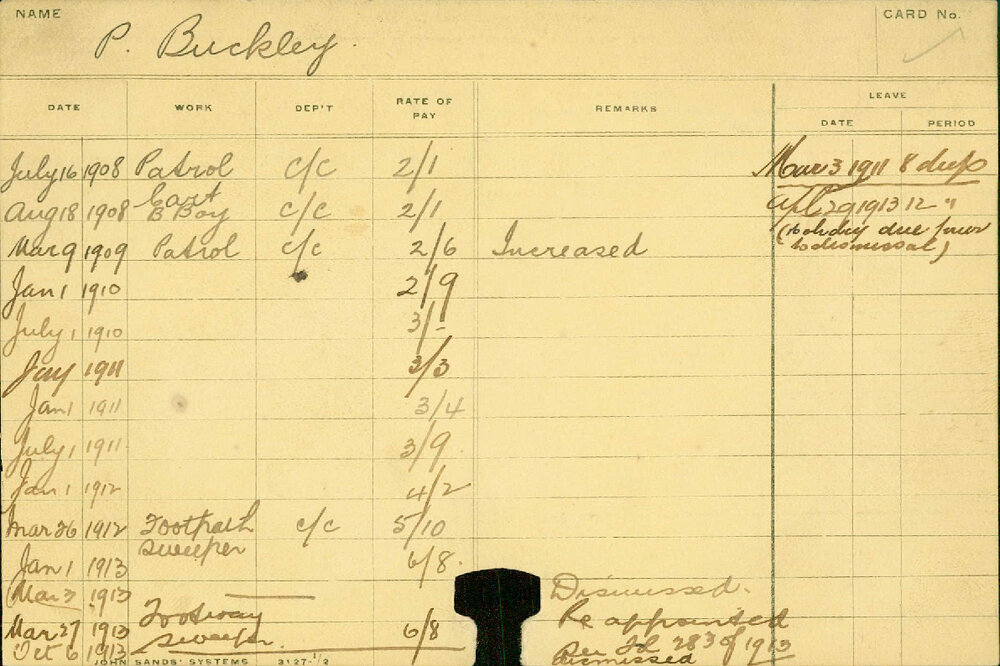 NAME P. Buckley. CARD No.
DATE WORK DEP'T RATE OF PAY REMARKS LEAVE
DATE PERIOD
July 16 1908 Patrol c/c 2/1 Mar 3 1911 8 days
Aug 18 1908 Cart B Boy c/c 2/1 Apl 29 1913 12 "
Mar 9 1909 Patrol c/c 2/6 Increased (holdy due
to dismissal)
Jan 1 1910 2/9
July 1 1910 3/-
Jany 1911 3/3
Jan 1 1911 3/4
July 1 1911 3/9
Jan 1 1912 4/2
Mar 26 1912 Footpath sweeper c/c 5/10
Jan 1 1913 6/8
Mar 3 1913 Dismissed.
Mar 27 1913 Footway sweeper. 6/8 Re appointed
Oct 6 1913 283 of 1913
dismissed
JOHN SANDS' SYSTEMS 3127-1/2